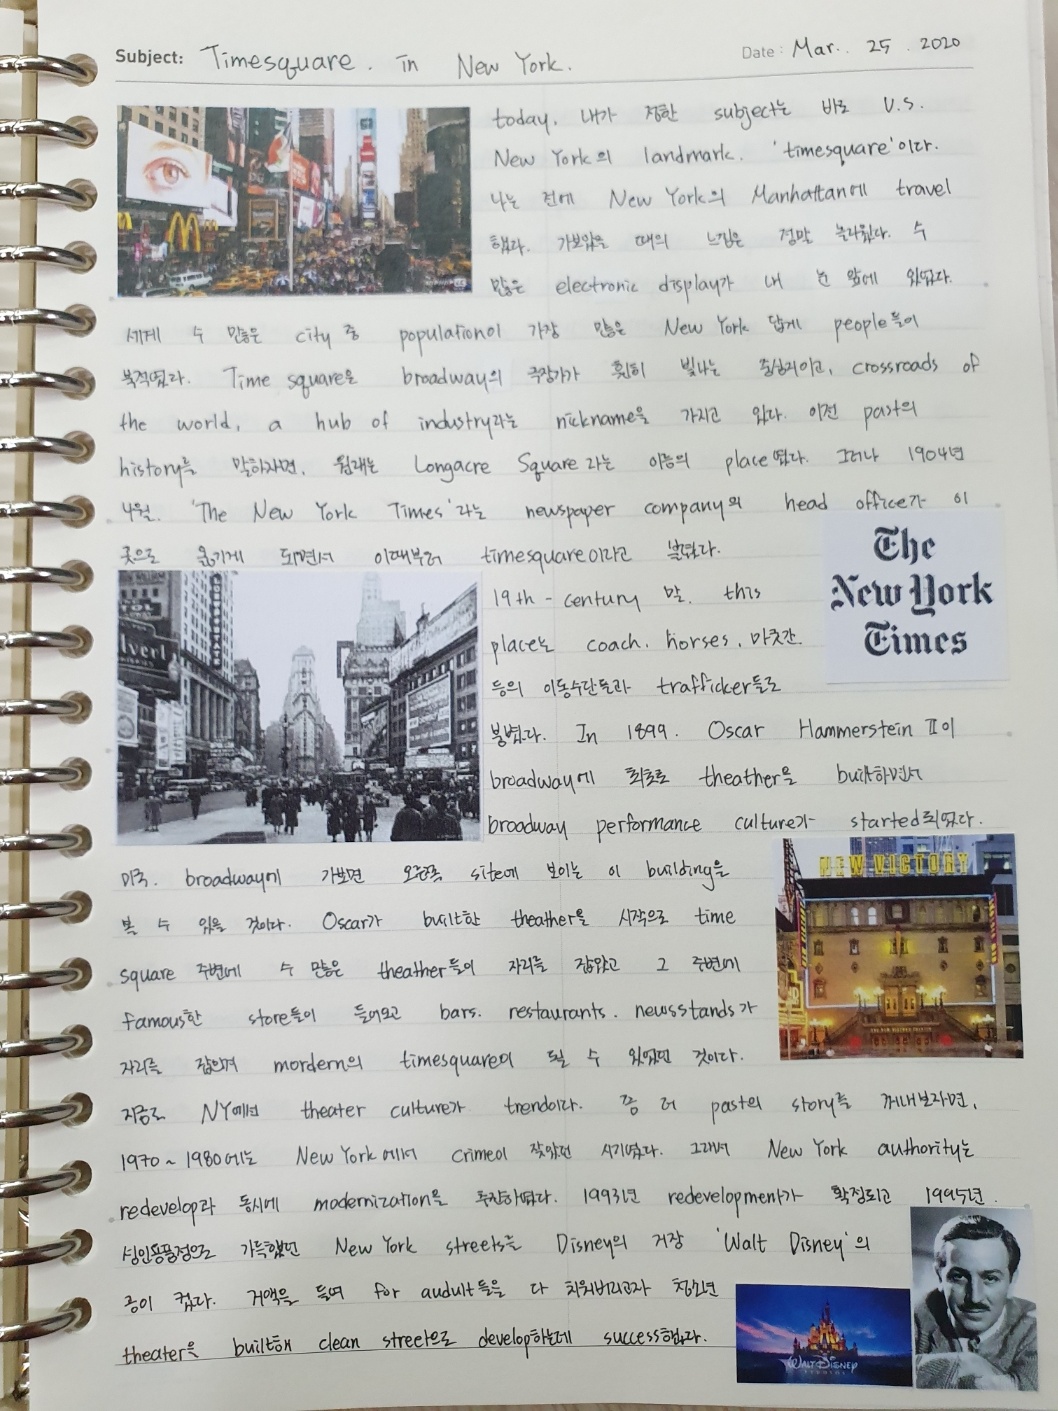 Subject: Timesquare. in New York.
Date: Mar. 25. 2020
today. 내가 정한 subject는 바로 U.S.
New York의 landmark. 'timesquare'이다.
나는 전에 New York의 Manhattan에 travel
했다. 가보았을 때의 느낌은 정말 놀라웠다. 수
많은 electronic display가 내 눈 앞에 있었다.
세계 수 많은 city 중 population이 가장 많은 New York 답게 people들이
북적였다. Time square은 broadway의 극장가가 훤히 빛나는 중심지이고, crossroads of
the world, a hub of industry라는 nickname을 가지고 있다. 이전 past의
history를 말하자면, 원래는 Longacre Square라는 이름의 place였다. 그러나 1904년
4월. 'The New York Times'라는 newspaper company의 head office가 이
곳으로 옮기게 되면서 이때부터 timesquare이라고 불렸다.
The
New York
Times
19th-century 말. this
place는 coach, horses, 마굿간.
등의 이동수단들과 trafficker들로
붐볐다. In 1899. Oscar Hammerstein II이
broadway에 최초로 theather을 built하면서
broadway performance culture가 started되었다.
미국. broadway에 가보면 오른쪽 site에 보이는 이 building을
볼 수 있을 것이다. Oscar가 built한 theather을 시작으로 time
square 주변에 수 많은 theather들이 자리를 잡았고 그 주변에
famous한 store들이 들어오고 bars. restaurants. newsstands가
자리를 잡으며 mordern의 timesquare이 될 수 있었던 것이다.
NEW VICTORY
지금도 NY에선 theater culture가 trend이다. 좀 더 past의 story를 꺼내보자면,
1970~1980에는 New York에서 crime이 잦았던 시기였다. 그래서 New York authority는
redevelop과 동시에 modernization을 주장하였다. 1993년 redevelopment가 확정되고 1995년.
성인용품점으로 가득했던 New York streets를 Disney의 거장 'Walt Disney'의
공이 컸다. 거액을 들여 for audult들을 다 치워버리고자 청소년
theater을 built해 clean street으로 develop하는데 success했다.
WALT DISNEY